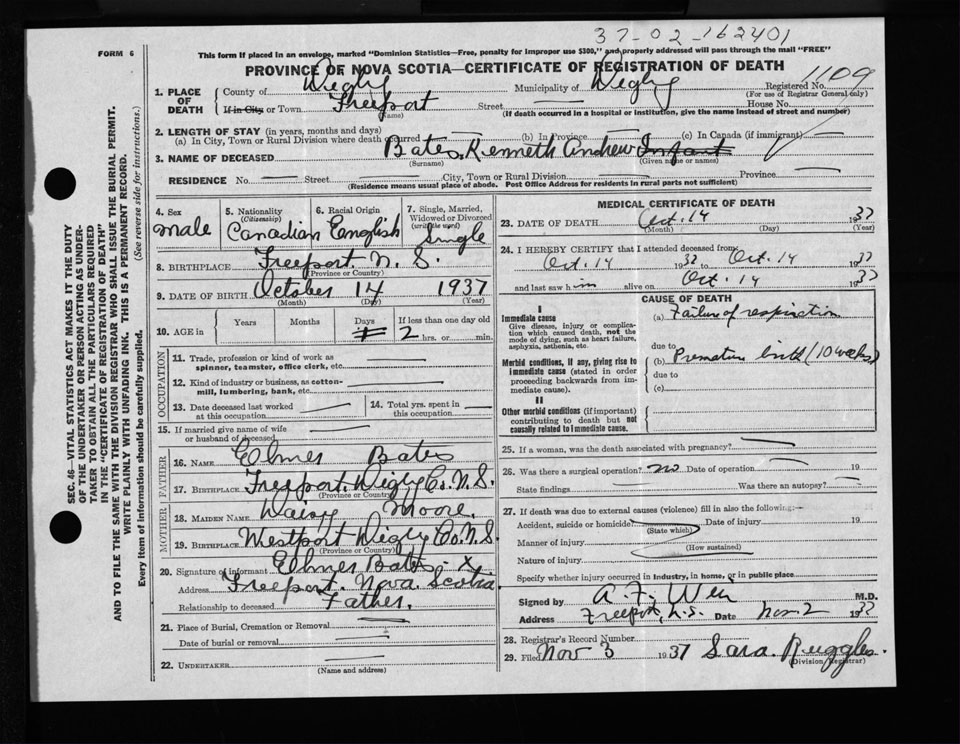 37-02-162401
FORM 6
This form if placed in an envelope, marked "Dominion Statistics—Free, penalty for improper use $300," and properly addressed will pass through the mail "FREE"
PROVINCE OF NOVA SCOTIA—CERTIFICATE OF REGISTRATION OF DEATH
1. PLACE OF DEATH County of Digby Municipality of Digby Registered No. 1109
(For use of Registrar General only)
If in City or Town Freeport Street — House No.
(Name) (If death occurred in a hospital or institution, give the name instead of street and number)
2. LENGTH OF STAY (in years, months and days)
(a) In City, Town or Rural Division where death occurred — (b) In Province — (c) In Canada (if immigrant) —
3. NAME OF DECEASED Bates, Kenneth Andrew Infant
(Surname) (Given name or names)
RESIDENCE No. — Street — City, Town or Rural Division — Province —
(Residence means usual place of abode. Post Office Address for residents in rural parts not sufficient)
SEC. 46—VITAL STATISTICS ACT MAKES IT THE DUTY
OF THE UNDERTAKER OR PERSON ACTING AS UNDER-
TAKER TO OBTAIN ALL THE PARTICULARS REQUIRED
IN THE "CERTIFICATE OF REGISTRATION OF DEATH"
AND TO FILE THE SAME WITH THE DIVISION REGISTRAR WHO SHALL ISSUE THE BURIAL PERMIT.
WRITE PLAINLY WITH UNFADING INK. THIS IS A PERMANENT RECORD.
Every item of information should be carefully supplied. (See reverse side for instructions.)
4. Sex
male
5. Nationality
(Citizenship)
Canadian
6. Racial Origin
English
7. Single, Married,
Widowed or Divorced
(write the word)
Single
8. BIRTHPLACE Freeport. N. S.
(Province or Country)
9. DATE OF BIRTH October 14 1937
(Month) (Day) (Year)
10. AGE in Years Months Days If less than one day old
2 hrs. or min.
OCCUPATION
11. Trade, profession or kind of work as
spinner, teamster, office clerk, etc. —
12. Kind of industry or business, as cotton-
mill, lumbering, bank, etc. —
13. Date deceased last worked
at this occupation —
14. Total yrs. spent in
this occupation —
15. If married give name of wife
or husband of deceased —
FATHER
16. NAME Elmer Bates
17. BIRTHPLACE Freeport Digby Co. N.S.
(Province or Country)
MOTHER
18. MAIDEN NAME Moore.
19. BIRTHPLACE Westport Digby Co. N.S.
(Province or Country)
20. Signature of informant Elmer Bates X
Address Freeport. Nova Scotia.
Relationship to deceased Father.
21. Place of Burial, Cremation or Removal —
Date of burial or removal —
22. UNDERTAKER —
(Name and address)
MEDICAL CERTIFICATE OF DEATH
23. DATE OF DEATH Oct. 14 1937
(Month) (Day) (Year)
24. I HEREBY CERTIFY that I attended deceased from
Oct. 14 1937 to Oct. 14 1937
and last saw him alive on Oct. 14 1937
CAUSE OF DEATH
I
Immediate cause
Give disease, injury or complica-
tion which caused death, not the
mode of dying, such as heart failure,
asphyxia, asthenia, etc.
(a) Failure of respiration
due to
Morbid conditions, if any, giving rise to
immediate cause (stated in order
proceeding backwards from im-
mediate cause).
(b) Premature birth (10 weeks)
due to
(c)
II
Other morbid conditions (if important)
contributing to death but not
causally related to immediate cause.
25. If a woman, was the death associated with pregnancy? —
26. Was there a surgical operation? no Date of operation — 19
State findings — Was there an autopsy? —
27. If death was due to external causes (violence) fill in also the following:—
Accident, suicide or homicide Date of injury 19
(State which)
Manner of injury
(How sustained)
Nature of injury
Specify whether injury occurred in industry, in home, or in public place
Signed by A. F. M.D.
Address Freeport, N.S. Date Nov. 2 1937
28. Registrar's Record Number
29. Filed Nov 3 1937 Sara Ruggles.
(Division Registrar)